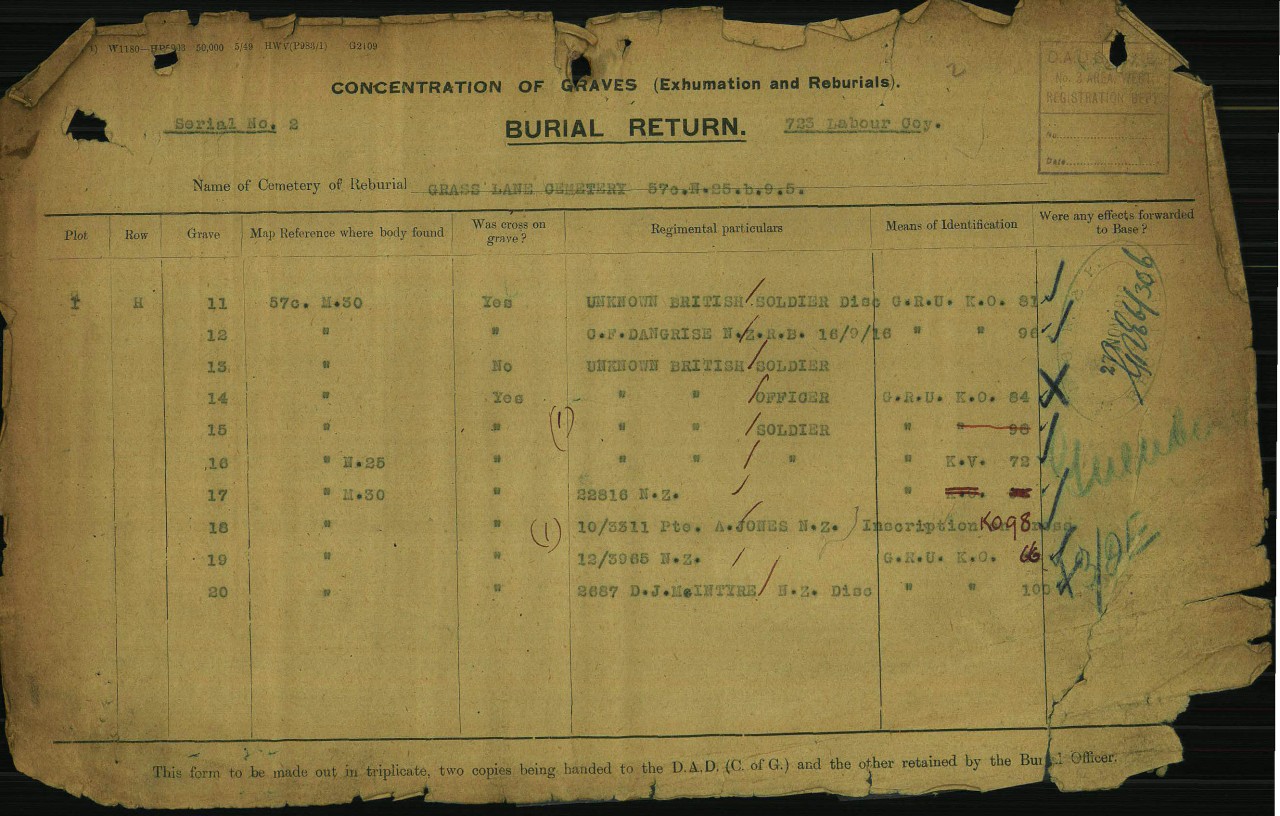 W1180— 50,000 5/49 HWV(P983/1) G2109
CONCENTRATION OF GRAVES (Exhumation and Reburials).
2
Serial No. 2 BURIAL RETURN. 723 Labour Coy.
No. 3 AREA WEST
REGISTRATION DEPT
Date
Name of Cemetery of Reburial GRASS LANE CEMETERY 57c.N.25.b.9.5.
Plot Row Grave Map Reference where body found Was cross on grave? Regimental particulars Means of Identification Were any effects forwarded to Base?
H 11 57c. M.30 Yes UNKNOWN BRITISH SOLDIER Disc G.R.U. K.O. 81
12 " " C.F.DANGRISE N.Z.R.B. 16/9/16 " " 96
13 " No UNKNOWN BRITISH SOLDIER
14 " Yes " " OFFICER G.R.U. K.O. 84
15 " " (1) " " SOLDIER " "
16 " N.25 " " " " " K.V. 72
17 " M.30 " 22816 N.Z. " K.O.
18 " " (1) 10/3311 Pte. A.JONES N.Z. Inscription on Cross KO98
19 " " 12/3965 N.Z. G.R.U. K.O. 66
20 " " 2687 D.J.McINTYRE N.Z. Disc " " 100
This form to be made out in triplicate, two copies being handed to the D.A.D. (C. of G.) and the other retained by the Burial Officer.